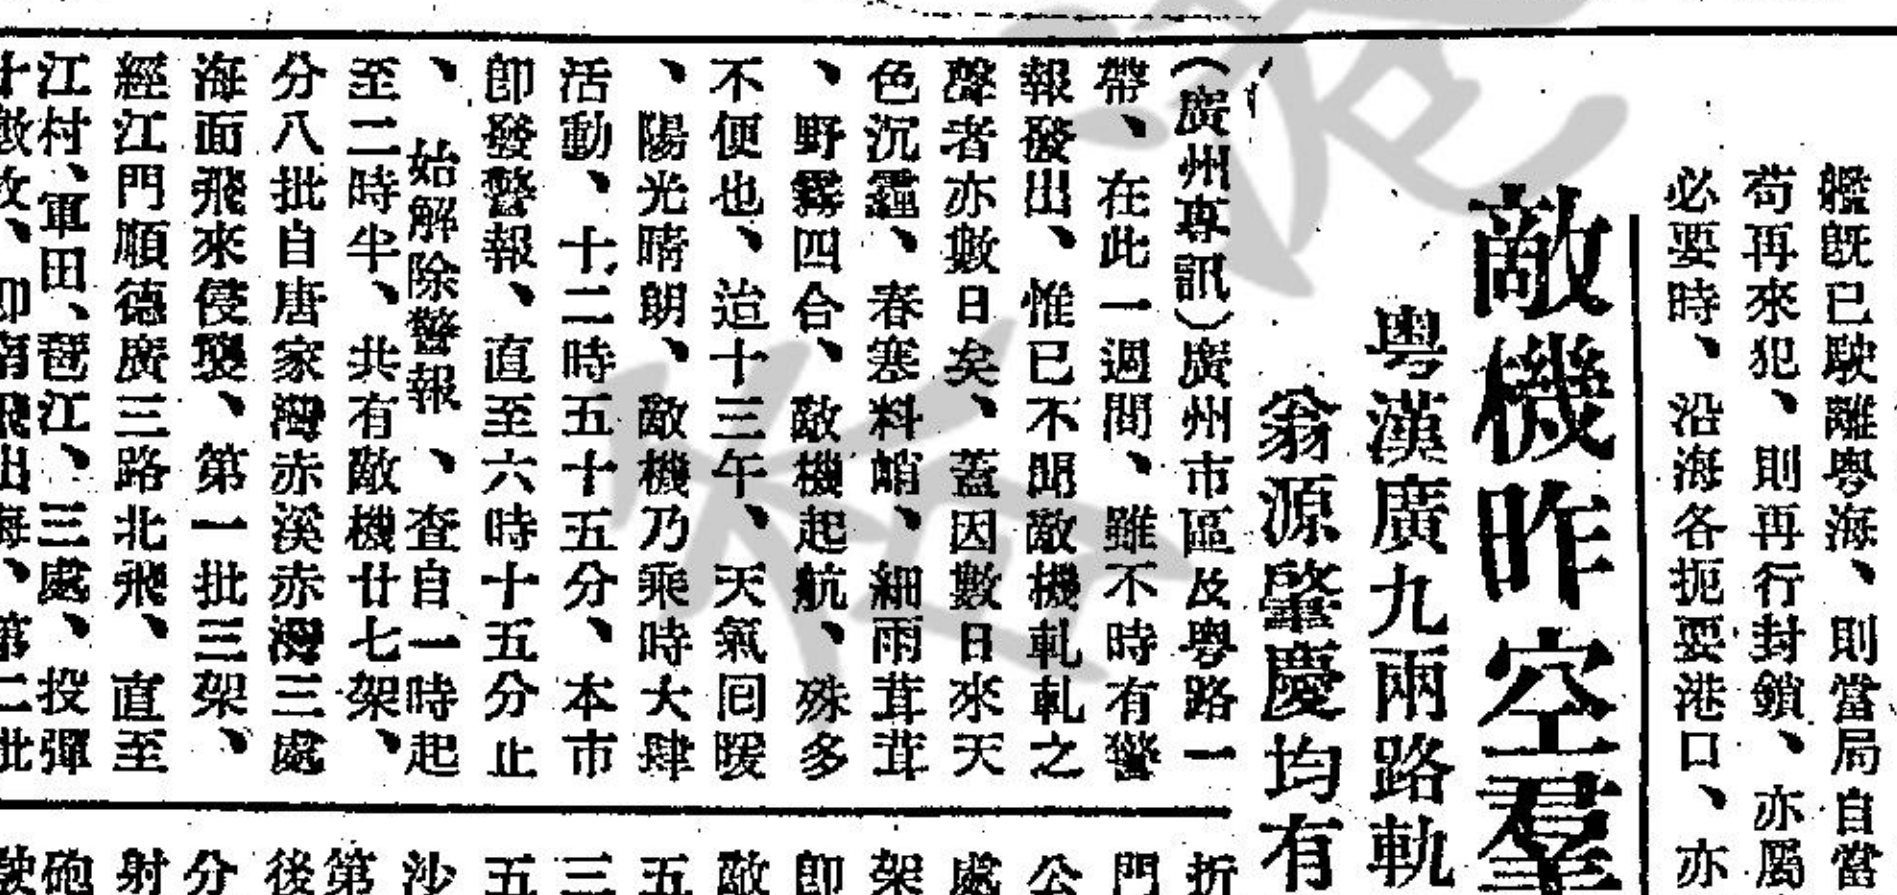 艦既已駛離粵海、則當局自當
苟再來犯、則再行封鎖、亦屬
必要時、沿海各扼要港口、亦
敵機昨空羣
粵漢廣九兩路軌
翁源肇慶均有
(廣州專訊)廣州市區及粵路一
帶、在此一週間、雖不時有警
報發出、惟已不聞敵機軋軋之
聲者亦數日矣、蓋因數日來天
色沉霾、春寒料峭、細雨茸茸
、野霧四合、敵機起航、殊多
不便也、迨十三午、天氣囘暖
、陽光晴朗、敵機乃乘時大肆
活動、十二時五十五分、本市
卽發警報、直至六時十五分止
、始解除警報、查自一時起
至二時半、共有敵機廿七架、
分八批自唐家灣赤溪赤灣三處
海面飛來侵襲、第一批三架、
經江門順德廣三路北飛、直至
江村、軍田、琶江、三處、投彈
十數枚、卽南飛出海、第二批
折
門
公
處
架
卽
敵
五
三
五
沙
第
後
分
射
砲
駛